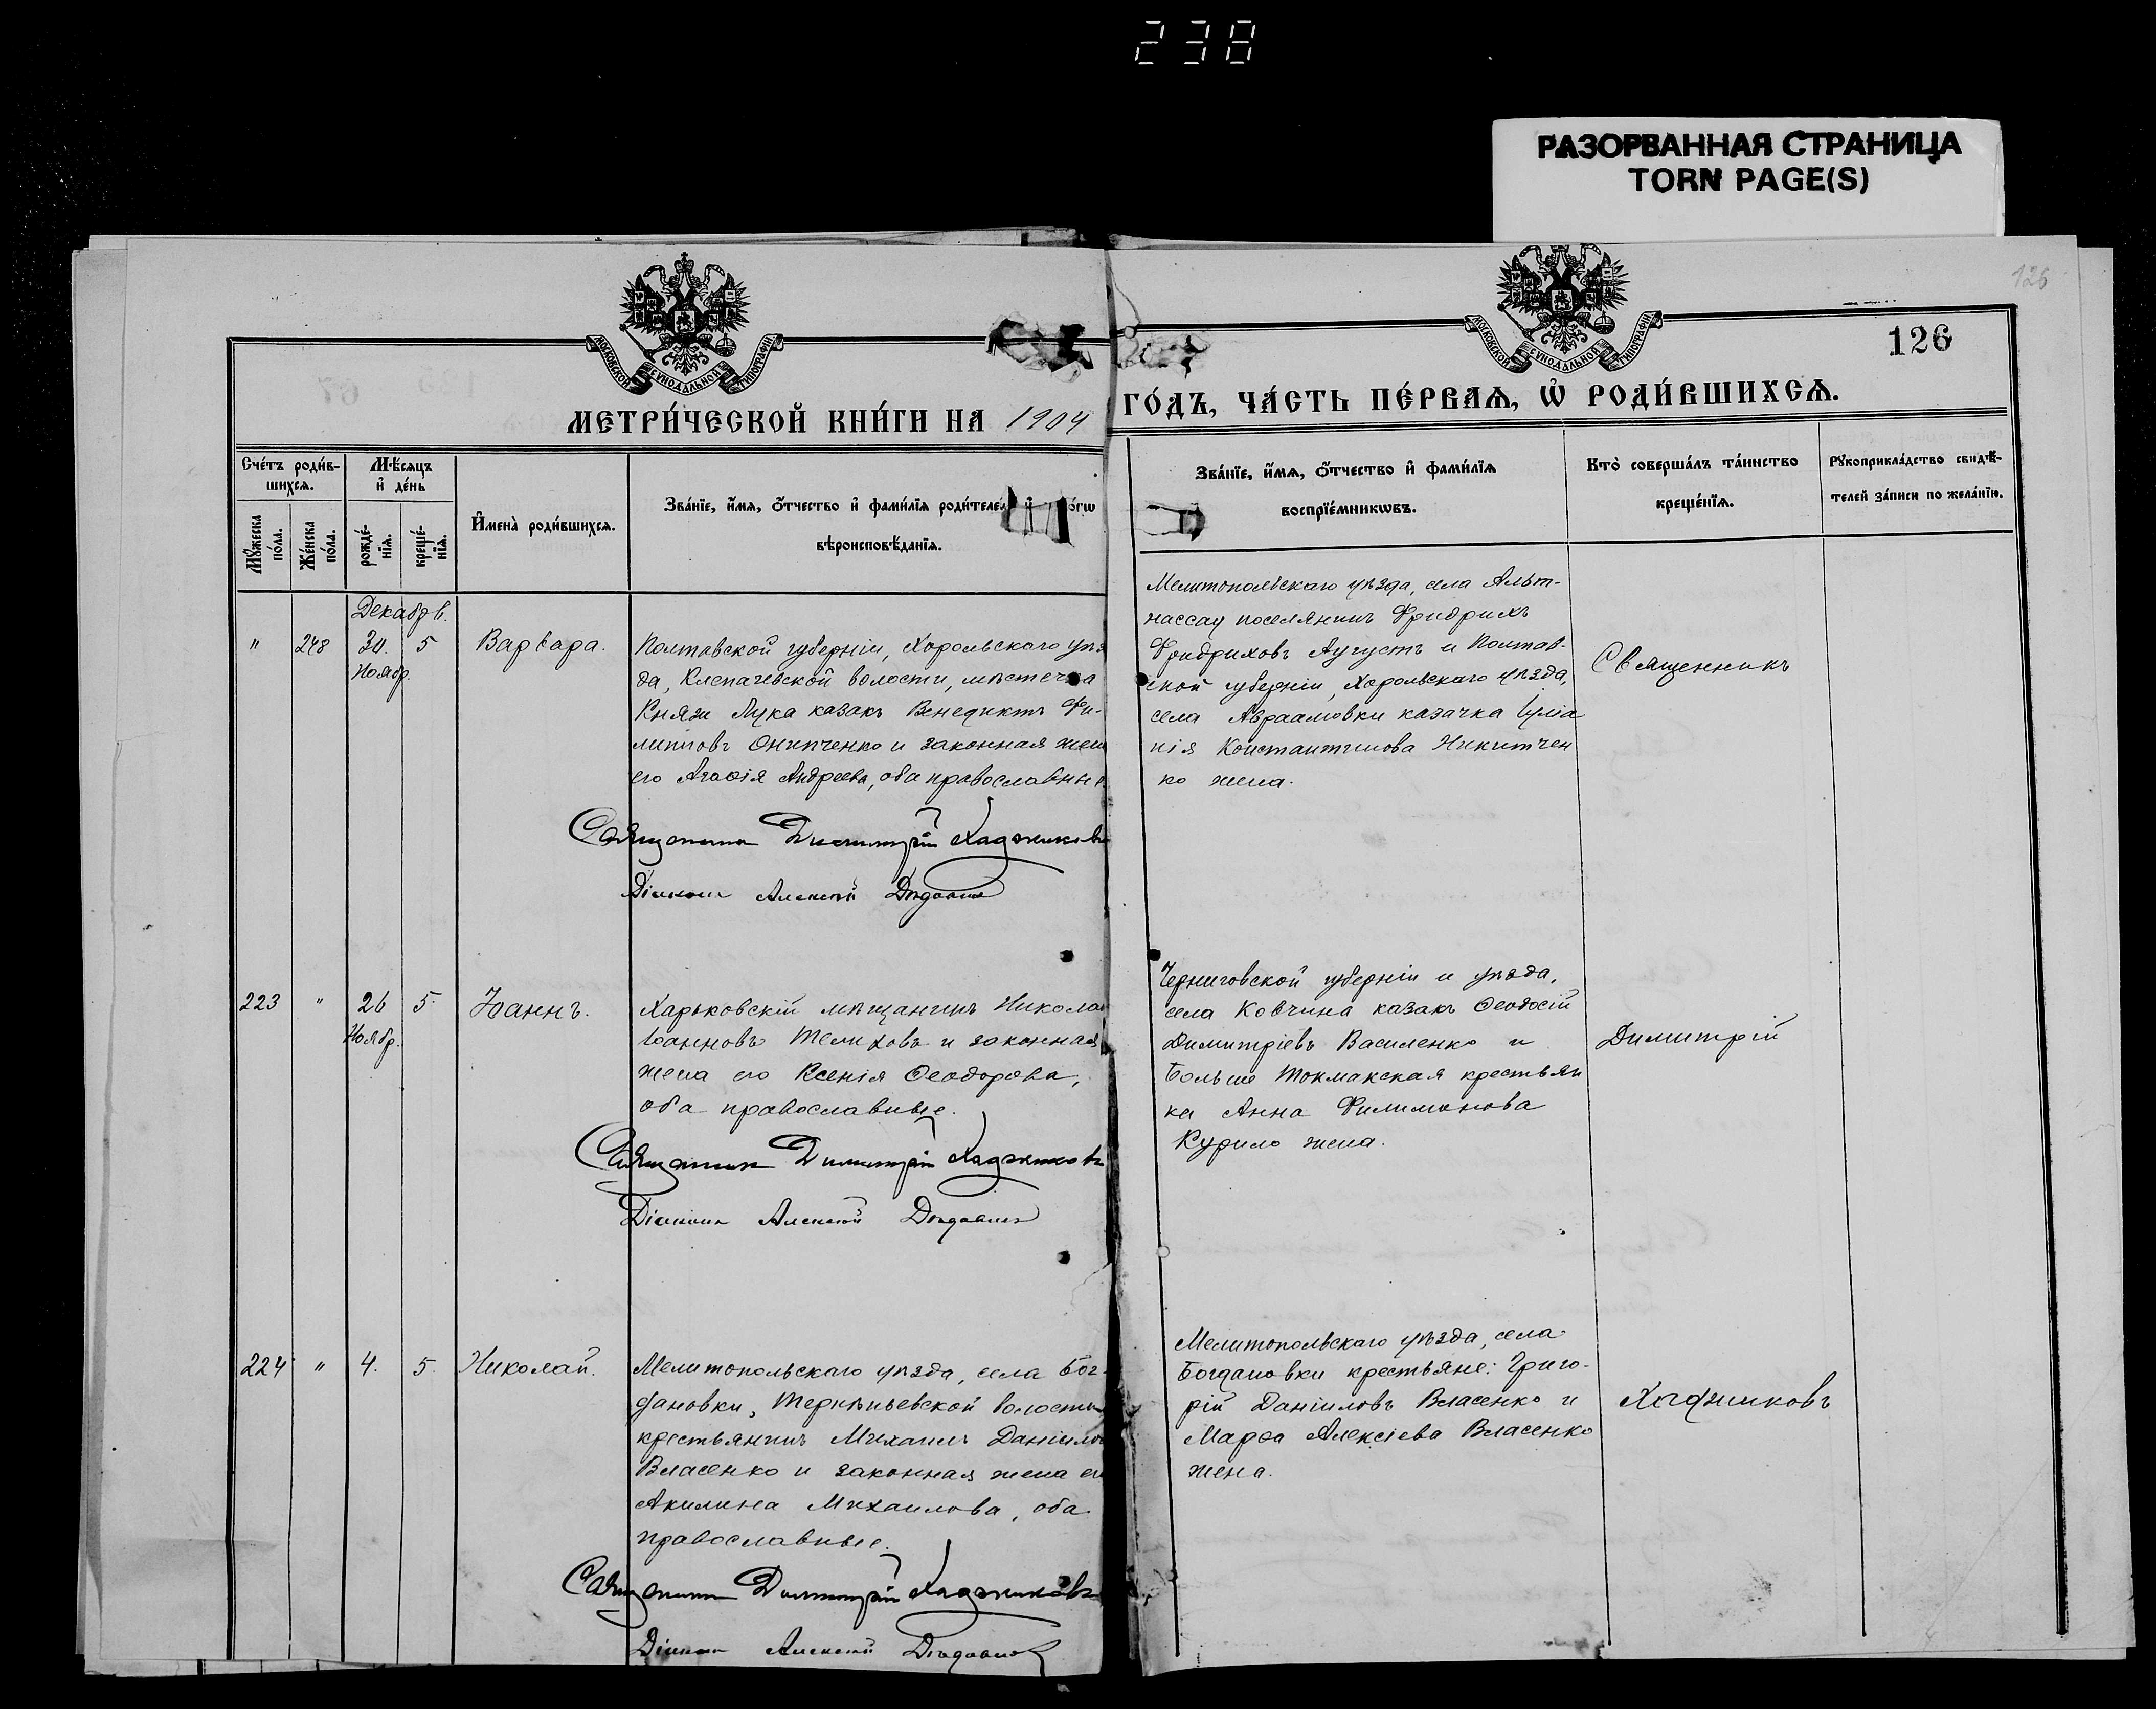 238
РАЗОРВАННАЯ СТРАНИЦА
TORN PAGE(S)
126
126
МОСКОВСКОЙ СѴНОДАЛЬНОЙ ТИПОГРАФІИ
МОСКОВСКОЙ СѴНОДАЛЬНОЙ ТИПОГРАФІИ
МЕТРИ́ЧЕСКОЙ КНИ́ГИ НА 1904 ГО́ДЪ, ЧА́СТЬ ПЕ́РВАѦ, Ѡ҆ РОДИ́ВШИХСѦ.
Сче́тъ роди́в-
шихсѧ.
Мѣ́сяцъ
и҆ де́нь
Мꙋ́жеска по́ла.
Же́нска по́ла.
рожде́-
нїѧ.
креще́-
нїѧ.
И҆мена̀ роди́вшихсѧ.
Зва́нїе, и҆́мѧ, ѻ҆́тчество и҆ фами́лїѧ роди́телей и҆
вѣроисповѣ́данїѧ.
Зва́нїе, и҆́мѧ, ѻ҆́тчество и҆ фами́лїѧ
воспрїе́мникѡвъ.
Кто̀ соверша́лъ та́инство
креще́нїѧ.
Рꙋкоприкла́дство свидѣ́-
телей за́писи по жела́нїю.
Декабрь.
" 248 30. 5 Варвара.
Ноябр.
Полтавской губерніи, Хорольского уѣз
да, Клепачевской волости, мѣстечка
Князи Лука казакъ Венедиктъ Фи-
липповъ Онипченко и законная жен
его Агаѳія Андреева, оба православные
Священникъ Димитрій Хаджиковъ
Діаконъ Алексій
Мелитопольскаго уѣзда, села Альт-
нассау поселянинъ Фридрихъ
Фридриховъ Аугустъ и Полтав-
ской губерніи, Хорольскаго уѣзда,
села Авраамовки казачка Іуліа
нія Константинова Никитчен
ко жена.
Священникъ
223 " 26 5. Іоаннъ.
Ноябр.
Харьковскій мѣщанинъ Никола
Іоанновъ Телиховъ и законная
жена его Ксенія Ѳеодорова,
оба православные.
Священникъ Димитрій Хаджиковъ
Діаконъ Алексій
Черниговской губерніи и уѣзда,
села Ковчина казакъ Ѳеодосій
Димитріевъ Василенко и
Больше Токмакская крестьян
ка Анна Филимонова
Курило жена.
Димитрій
224 " 4. 5. Николай.
Мелитопольскаго уѣзда, села Бог-
дановки, Терпѣньевской волости
крестьянинъ Михаилъ Даніилов
Власенко и законная жена ег
Акилина Михаилова, оба
православные.
Священникъ Димитрій Хаджиковъ
Діаконъ Алексій
Мелитопольскаго уѣзда, села
Богдановки крестьяне: Григо-
рій Даніиловъ Власенко и
Марѳа Алексіева Власенко
жена.
Хаджиковъ